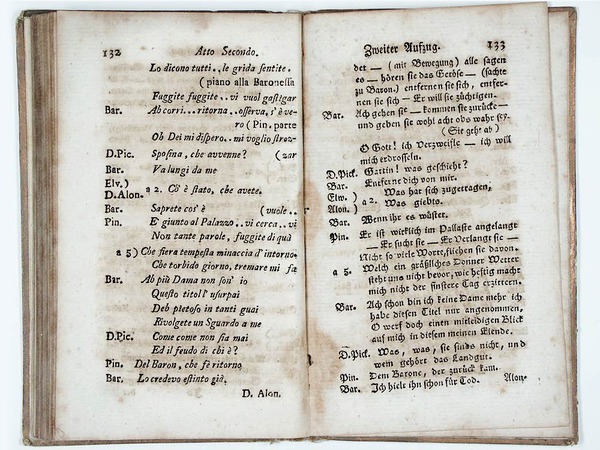 132 Atto Secondo.
Lo dicono tutti.. le grida sentite.
(piano alla Baronessa
Fuggite fuggite.. vi vuol gastigar
Bar. Ah corri... ritorna.. osserva, s' è ve-
ro (Pin. parte
Oh Dei mi dispero.. mi voglio stroz-
D.Pic. Sposina, che avvenne? (zar
Bar. Va lungi da me
Elv.)
D.Alon.) a 2. Cos' è stato, che avete.
Bar. Saprete cos' è (vuole..
Pin. E' giunto al Palazzo.. vi cerca.. vi
Non tante parole, fuggite di quà
a 5) Che fiera tempesta minaccia d'intorno.
Che torbido giorno, tremare mi fa
Bar. Ah più Dama non son' io
Questo titol l' usurpai
Deh pietoso in tanti guai
Rivolgete un Sguardo a me
D.Pic. Come come non sia mai
Ed il feudo di chi è?
Pin. Del Baron, che fè ritorno
Bar. Lo credevo estinto già.
D. Alon.
Zweiter Aufzug. 133
det — (mit Bewegung) alle sagen
es — hören sie das Getöse — (sachte
zu Baron.) entfernen sie sich, entfer-
nen sie sich — Er will sie züchtigen.
Bar. Ach gehen sie — kommen sie zurücke —
und geben sie wohl acht obs wahr sey.
(Sie geht ab)
O Gott! ich Verzweifle — ich will
mich erdrosseln.
D.Pick. Gattin! was geschieht?
Bar. Entferne dich von mir.
Elw. )
Alon. ) a 2. Was hat sich zugetragen,
Was giebts.
Bar. Wenn ihr es wüstet.
Pin. Er ist wirklich im Pallaste angelangt
— Er sucht sie — Er Verlangt sie —
Nicht so viele Worte, fliehen sie davon.
a 5. Welch ein gräßliches Donner Wetter
steht uns nicht bevor, wie heftig macht
mich nicht der finstere Tag erzittern.
Bar. Ach schon bin ich keine Dame mehr ich
habe diesen Titel nur angenommen,
O werf doch einen mitleidigen Blick
auf mich in diesem meinen Elende.
D.Pick. Was, was, sie sinds nicht, und
wem gehört das Landgut.
Pin. Dem Barone, der zurück kam.
Bar. Ich hielt ihn schon für Tod. Alon.